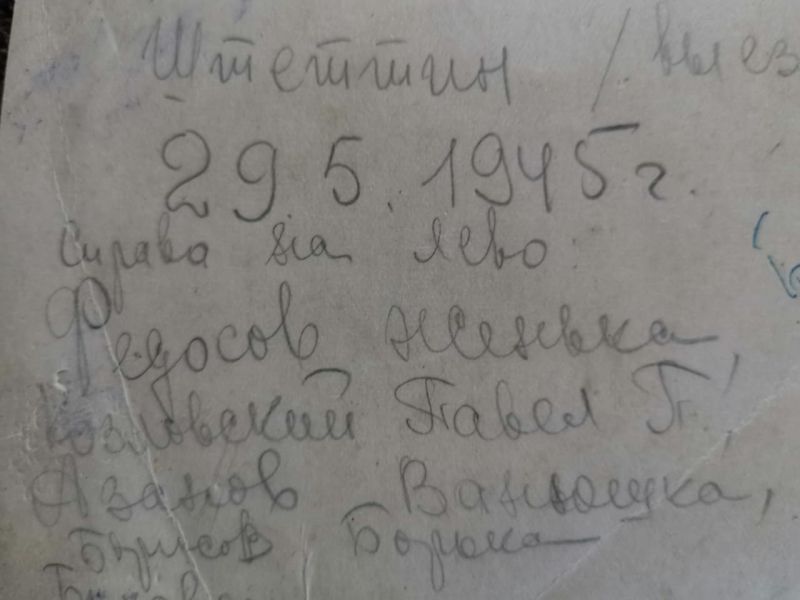 Штеттин / выез
29 5. 1945 г.
Справа на лево:
Федосов Женька,
Козловский Павел П.,
Азанов Ванюшка,
Борисов Борька